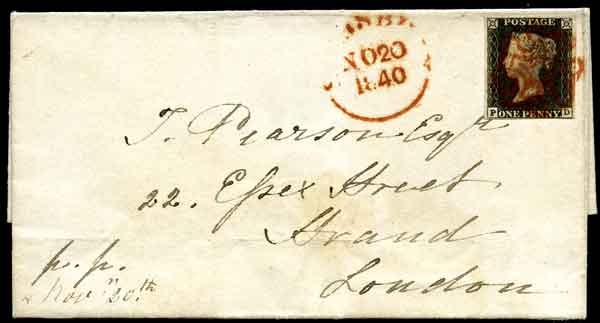 NO 20
1840
POSTAGE
P ONE PENNY D
T. Pearson Esqr
22. Essex Street
Strand
London
p.p.
Novr. 20.th